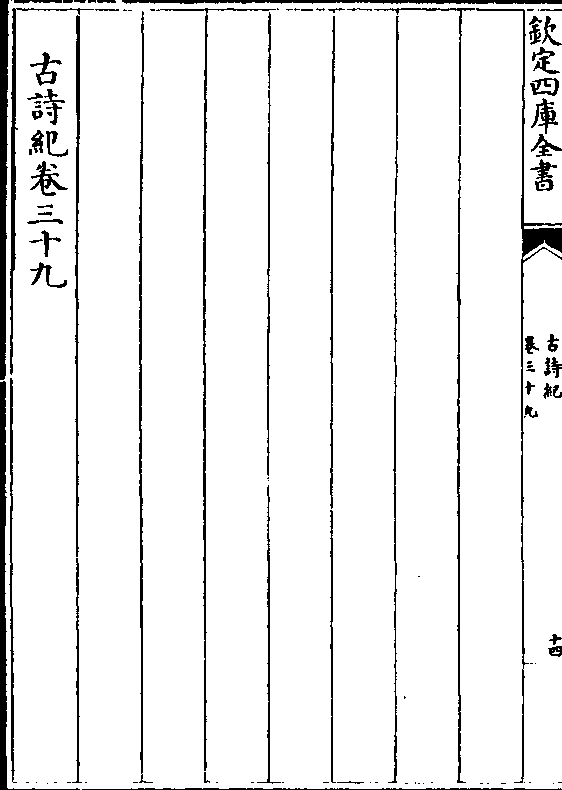 欽定四庫全書
古詩紀
卷三十九
十四
古詩紀卷三十九